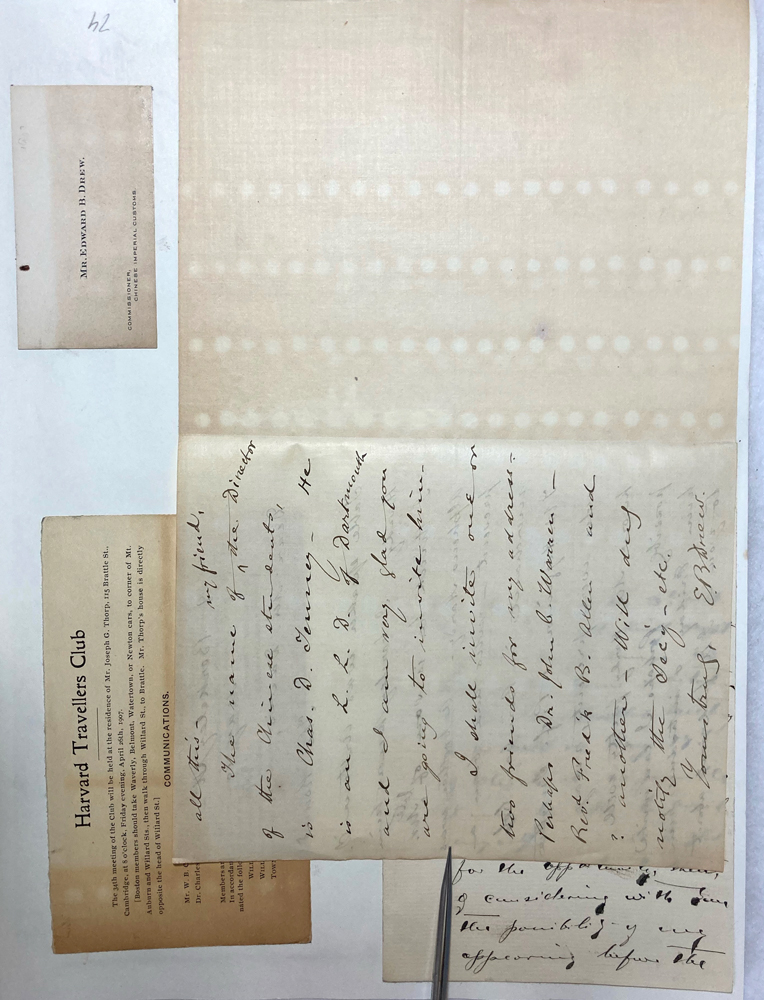 42
Mr. Edward B. Drew.
Commissioner,
Chinese Imperial Customs.
Harvard Travellers Club
The 34th meeting of the Club will be held at the residence of Mr. Joseph G. Thorp, 115 Brattle St.,
Cambridge, at 8 o'clock, Friday evening, April 26th, 1907.
[Boston members should take Waverly, Belmont, Watertown, or Newton cars, to corner of Mt.
Auburn and Willard Sts., then walk through Willard St., to Brattle. Mr. Thorp's house is directly
opposite the head of Willard St.]
COMMUNICATIONS.
Mr. W. B. C
Dr. Charles
Members a
In accordan
nated the follo
Will
Will
Tow
all this —
my friend,
The name of ^ the Director
of the Chinese students,
is Chas. D. Tenney — He
is an L L. D. of Dartmouth
and I am very glad you
are going to invite him —
I shall invite one or
two friends for my address —
Perhaps Dr. John C. Warren —
Revd. Fredk B. Allen and
? another — Will duly
notify the Secy — etc.
Yours truly,
E B Drew.
for the opportunity,
of considering with
the possibility of my
appearing before the